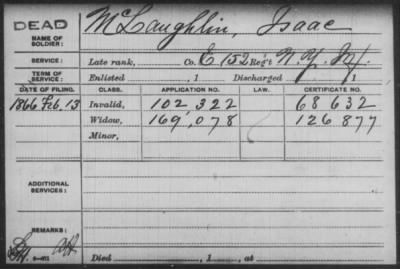 DEAD
NAME OF SOLDIER: McLaughlin, Isaac
SERVICE: Late rank, Co. E, 152 Reg't N.Y. Inf.
TERM OF SERVICE: Enlisted , 1 Discharged , 1
DATE OF FILING. CLASS. APPLICATION NO. LAW. CERTIFICATE NO.
1866 Feb. 13 Invalid, 102,322 68632
Widow, 169,078 126877
Minor,
ADDITIONAL SERVICES:
REMARKS:
Died , 1 , at